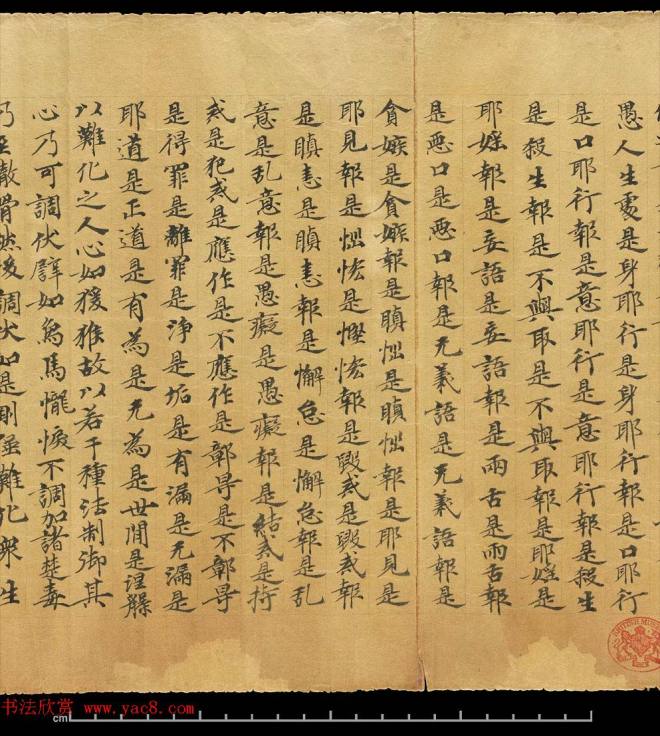 愚人生處是身耶行是身耶行報是口耶行
是口耶行報是意耶行是意耶行報是殺生
是殺生報是不與取是不與取報是耶婬是
耶婬報是妄語是妄語報是兩舌是兩舌報
是悪口是悪口報是无義語是无義語報是
貪嫉是貪嫉報是瞋惱是瞋惱報是耶見是
耶見報是慳悋是慳悋報是毀戒是毀戒報
是瞋恚是瞋恚報是懈怠是懈怠報是乱
意是乱意報是愚癡是愚癡報是結戒是持
戒是犯戒是應作是不應作是鄣㝵是不鄣㝵
是得罪是離罪是淨是垢是有漏是无漏是
耶道是正道是有為是无為是世間是涅槃
以難化之人心如猨猴故以若干種法制御其
心乃可調伏譬如象馬㦨悷不調加諸楚毒
乃至徹骨然後調伏如是剛强難化眾生
书法欣赏 www.yac8.com
cm